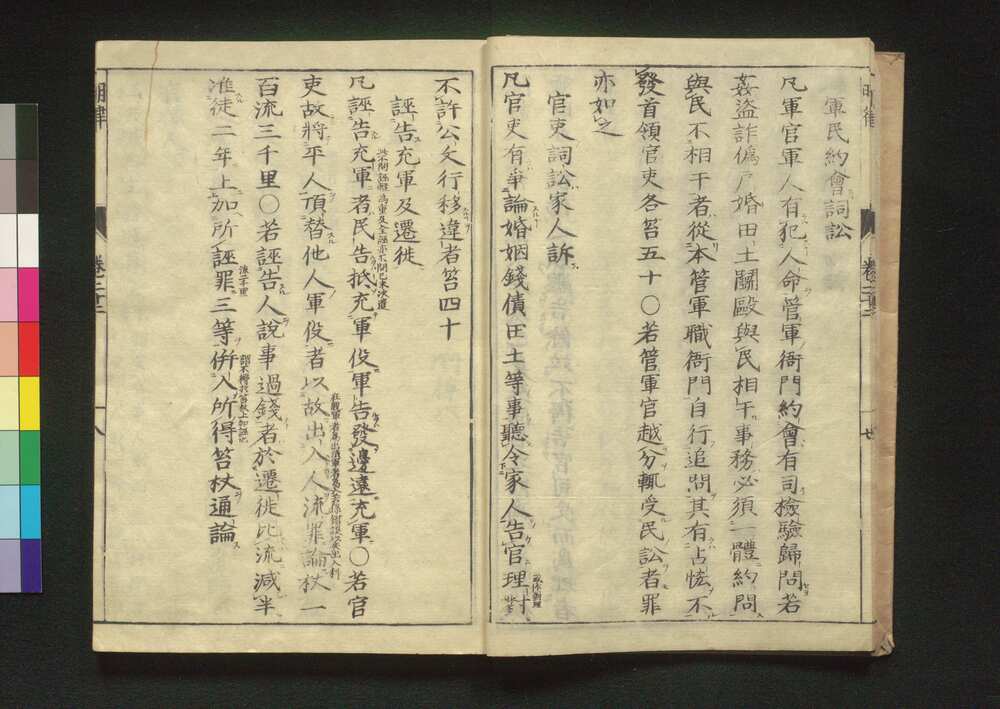 軍民約會詞訟
凡軍官軍人有犯人命管軍衙門約會有司檢驗歸問若
姦盜詐偽戶婚田土鬬毆與民相干事務必須一體約問
與民不相干者從本管軍職衙門自行追問其有占恡不
發首領官吏各笞五十〇若管軍官越分輒受民訟者罪
亦如之
官吏詞訟家人訴
凡官吏有爭論婚姻錢債田土等事聽令家人告官理
不許公文行移違者笞四十
誣告充軍及遷徙
凡誣告充軍者民告抵充軍役軍告發邊遠充軍〇若官
吏故將平人頂替他人軍役者以故出入人流罪論杖一
百流三千里〇若誣告人說事過錢者於遷徙比流減半
准徒二年上加所誣罪三等併入所得笞杖通論
明律
卷二十二
十八